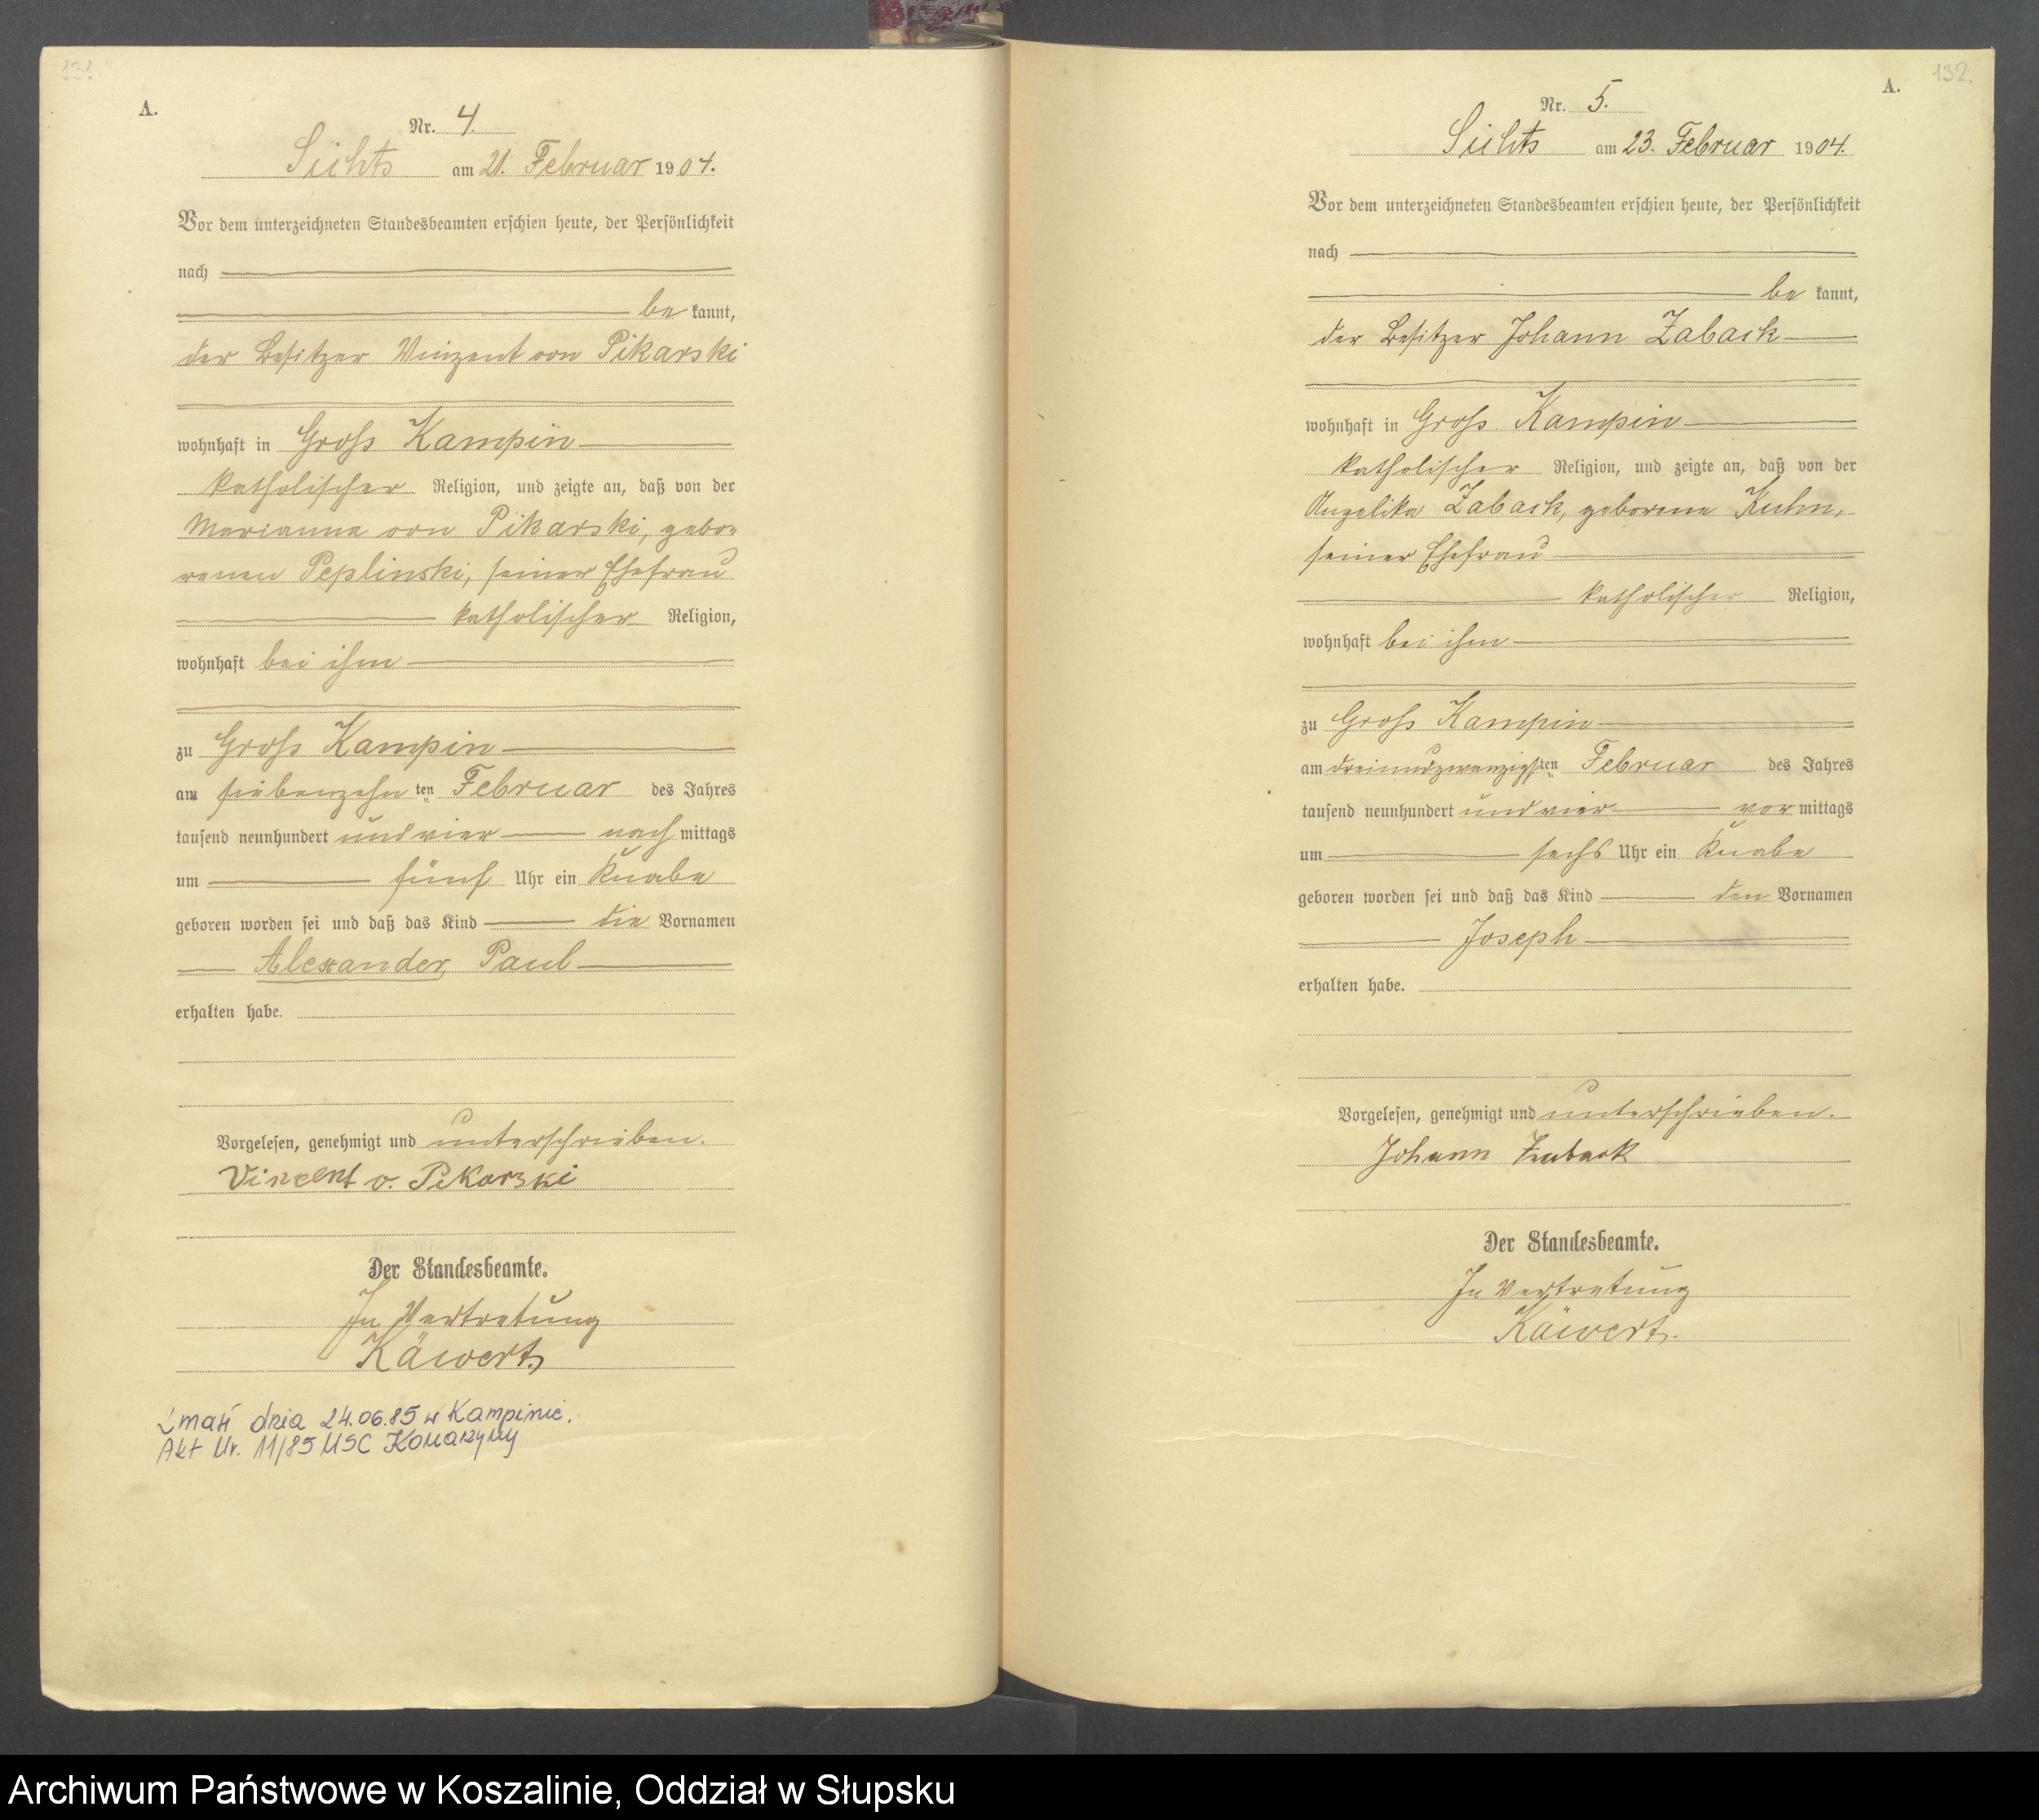 131.
A.
Nr. 4.
Sichts am 21. Februar 1904.
Vor dem unterzeichneten Standesbeamten erschien heute, der Persönlichkeit
nach
be kannt,
der Besitzer Vinzent von Pikarski
wohnhaft in Groß Kampin
katholischer Religion, und zeigte an, daß von der
Marianna von Pikarski, gebo-
renen Peplinski, seiner Ehefrau
katholischer Religion,
wohnhaft bei ihm
zu Groß Kampin
am siebenzehn ten Februar des Jahres
tausend neunhundert und vier nach mittags
um fünf Uhr ein Knabe
geboren worden sei und daß das Kind die Vornamen
Alexander Paul
erhalten habe.
Vorgelesen, genehmigt und unterschrieben.
Vincent v. Pikarski
Der Standesbeamte.
In Vertretung
Käwert.
Zmarł dnia 24.06.85 w Kampinie.
Akt Nr. 11/85 USC Konarzyny
132.
A.
Nr. 5.
Sichts am 23. Februar 1904.
Vor dem unterzeichneten Standesbeamten erschien heute, der Persönlichkeit
nach
be kannt,
der Besitzer Johann Zaback
wohnhaft in Groß Kampin
katholischer Religion, und zeigte an, daß von der
Angelika Zaback, geborene Kuhn,
seiner Ehefrau
katholischer Religion,
wohnhaft bei ihm
zu Groß Kampin
am dreiundzwanzigsten Februar des Jahres
tausend neunhundert und vier vor mittags
um sechs Uhr ein Knabe
geboren worden sei und daß das Kind den Vornamen
Joseph
erhalten habe.
Vorgelesen, genehmigt und unterschrieben.
Johann Zaback
Der Standesbeamte.
In Vertretung
Käwert.
Archiwum Państwowe w Koszalinie, Oddział w Słupsku